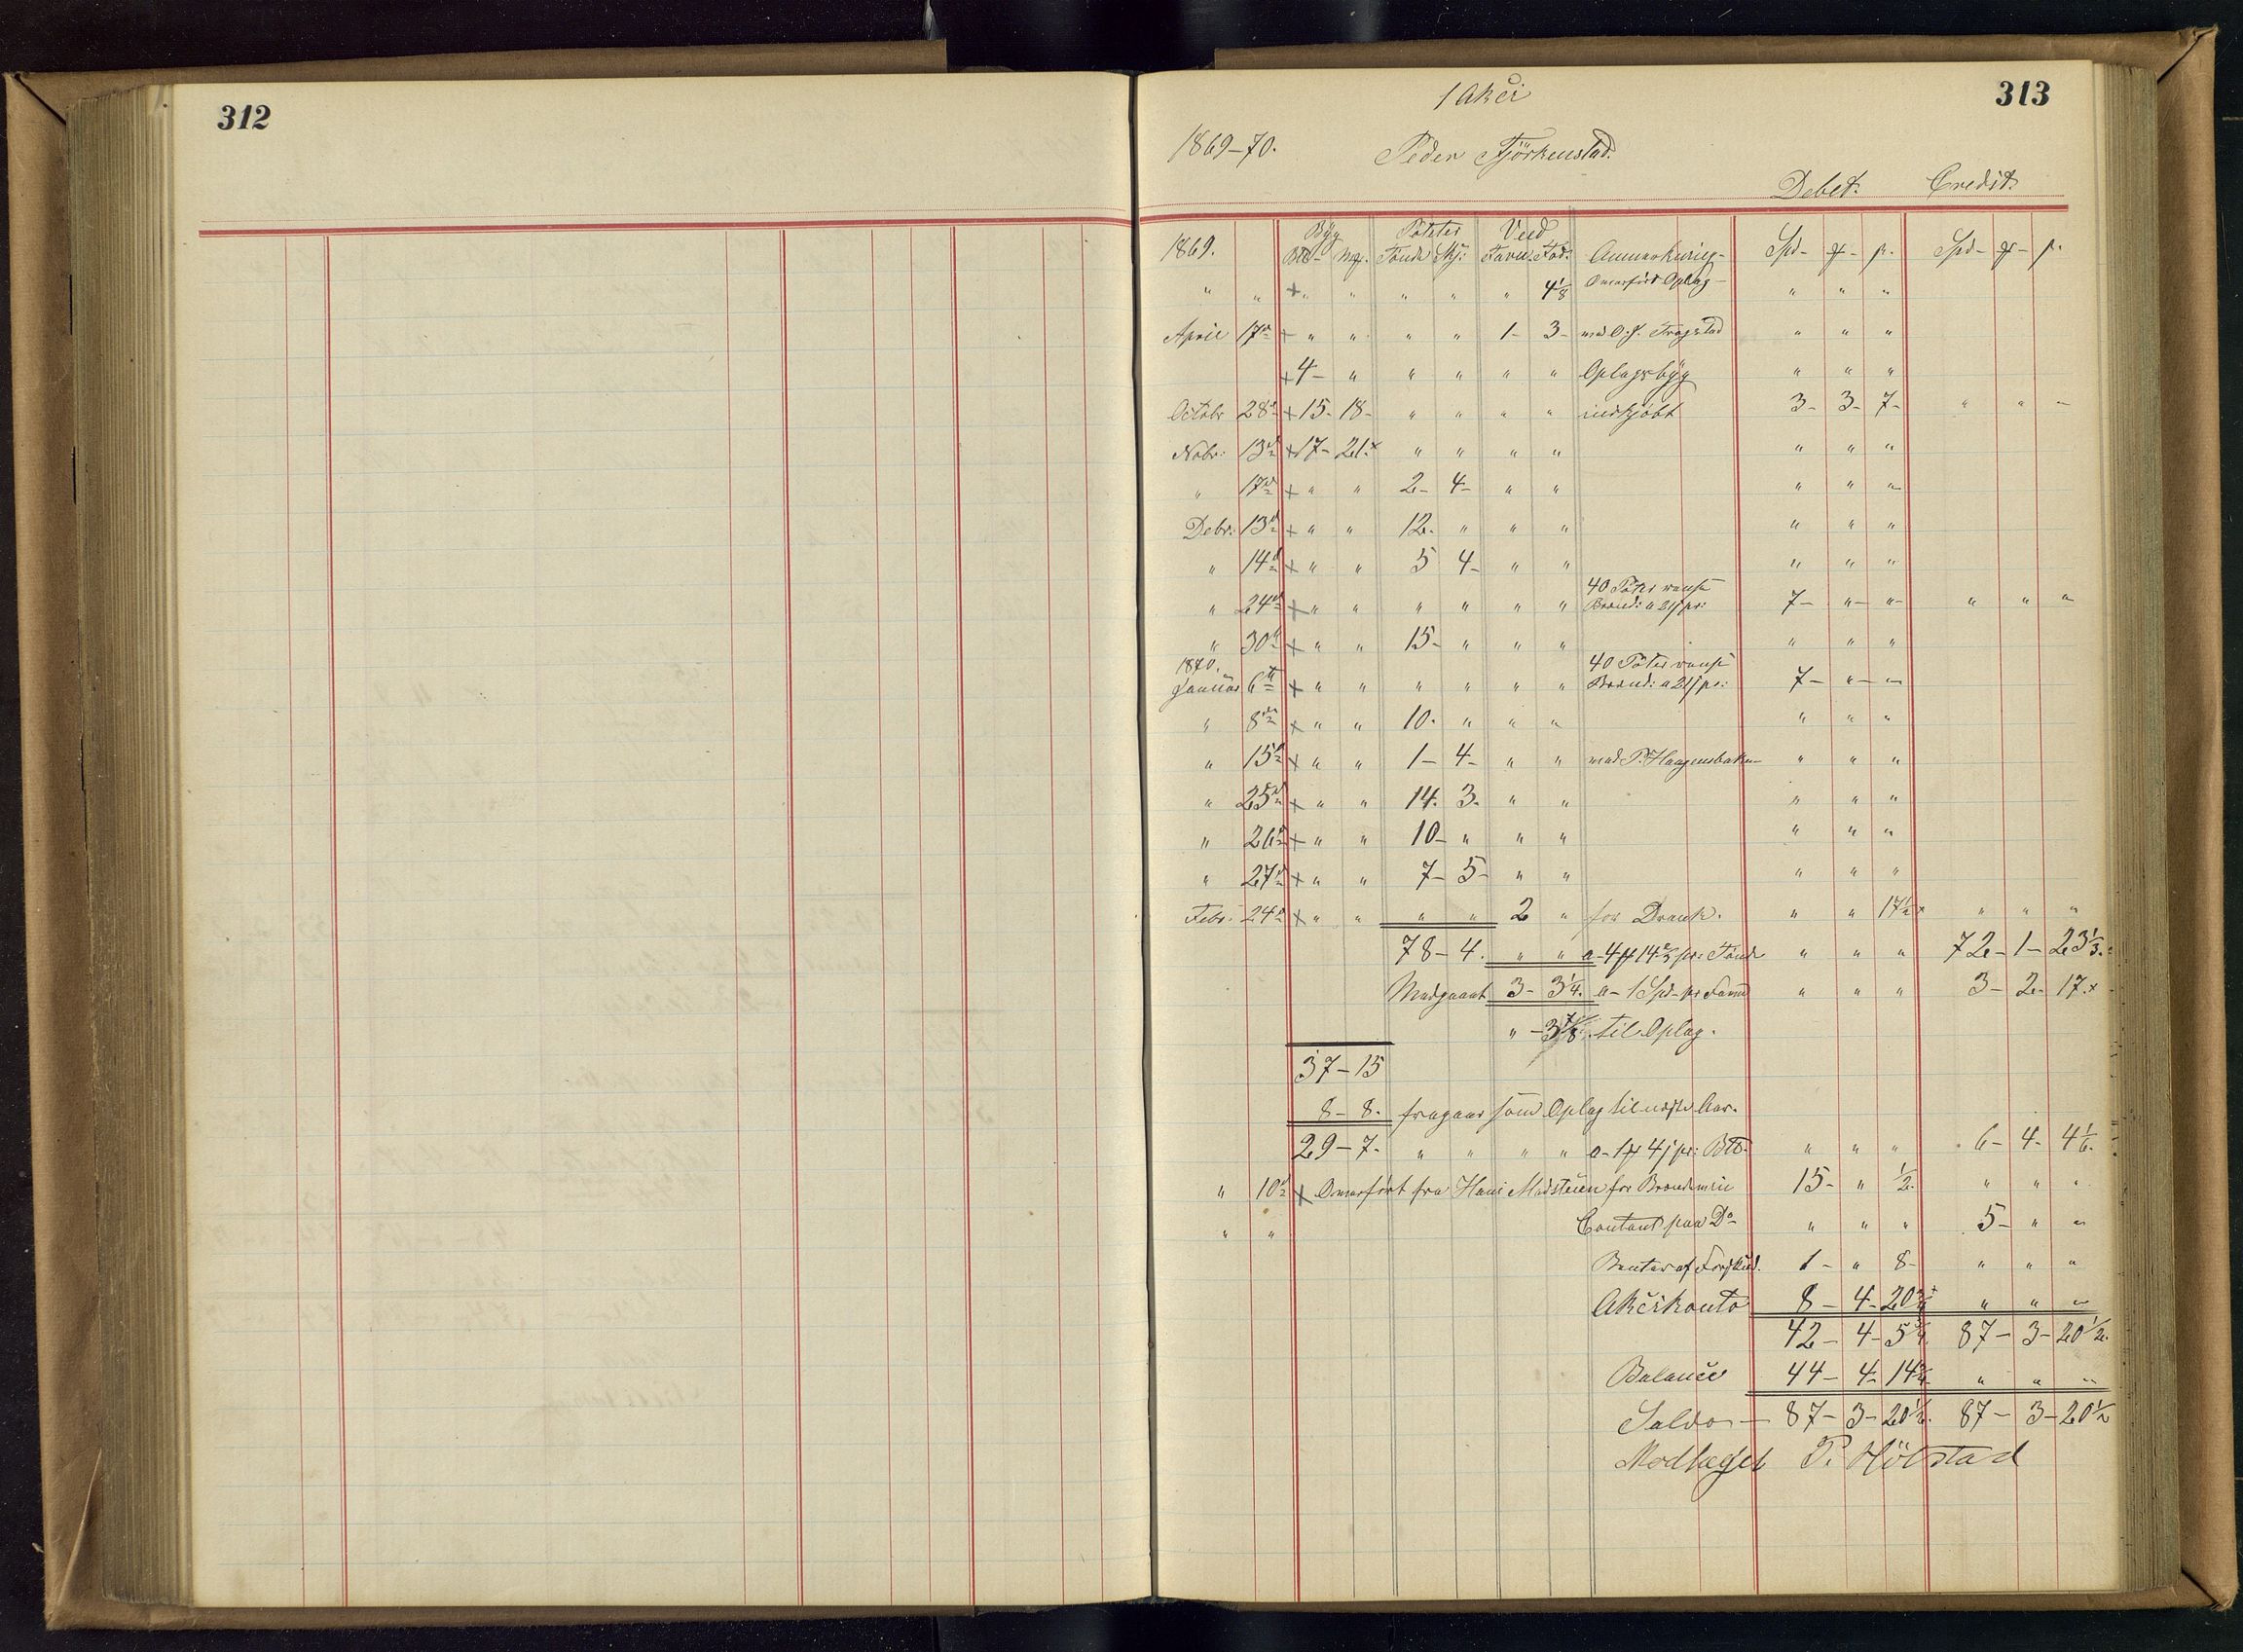 312
313
1 Akci
1869-70. Peder Fjörkenstad.
Debet. Credit.
Byg Poteter Ved
1869. Btb- Mg. Tönde Skj: Favn: Fod: Anmærkning- Spd- ß- Spd-
" " +" " " " " 4 1/8 Overfört Oplag- " " "
April 17de + " " " " 1- 3- ved O. J. Fragstad " " "
+4- " " " " " Oplagsbyg " " "
Octobr 28de +15- 18- " " " " indkjöbt 3- 3- 7- " " "
Nobr: 13de +17- 21.x " " " " " " "
" 17de + " " 2- 4- " " " " "
Debr: 13de + " " 12. " " " " " "
" 14de + " " 5 4- " " " " "
" 24de + " " " " " " 40 Potter Brænd: a 21 pr: 7- "- "- " " "
" 30te + " " 15- " " " " " "
1870.
Januar 6te + " " " " " " 40 Potter Brænd: a 21 pr: 7- "- "-
" 8de + " " 10. " " " " " "
" 15de + " " 1- 4- " " ved P. Haagensbakken " " "
" 25de + " " 14. 3. " " " " "
" 26de + " " 10- " " " " " "
" 27de + " " 7- 5- " " " " "
Febr: 24de + " " " " 2 " for Drank. " " 17 1/2x " " "
78-4. " " a- 4 14 2/5 pr: Tönde " " " 72- 1- 23 1/3.
Medgaaet 3- 3 1/4. a- 1 Spd- pr Favn " " " 3- 2- 17.x
"- 3 7/8. til Oplag.
37-15
8- 8. fragaar som Oplag til næste Aar.
29-7. " " " " a- 1 4 pr: Btb. " " " 6- 4- 4 1/6.
" 10de + Overfört fra Hans Madsteien for Brændeviin 15- " 1/2. " " "
" " Contant paa Do " " " 5- " "
Renter af Forskud. 1- " 8- " " "
Akcikonto 8- 4- 20 3/4 " " "
42- 4- 5 3/4. 87- 3- 20 1/2.
Balance 44- 4- 14 3/4 " " "
Saldo- 87- 3- 20 1/2. 87- 3- 20 1/2
Modtaget P. Hölstad